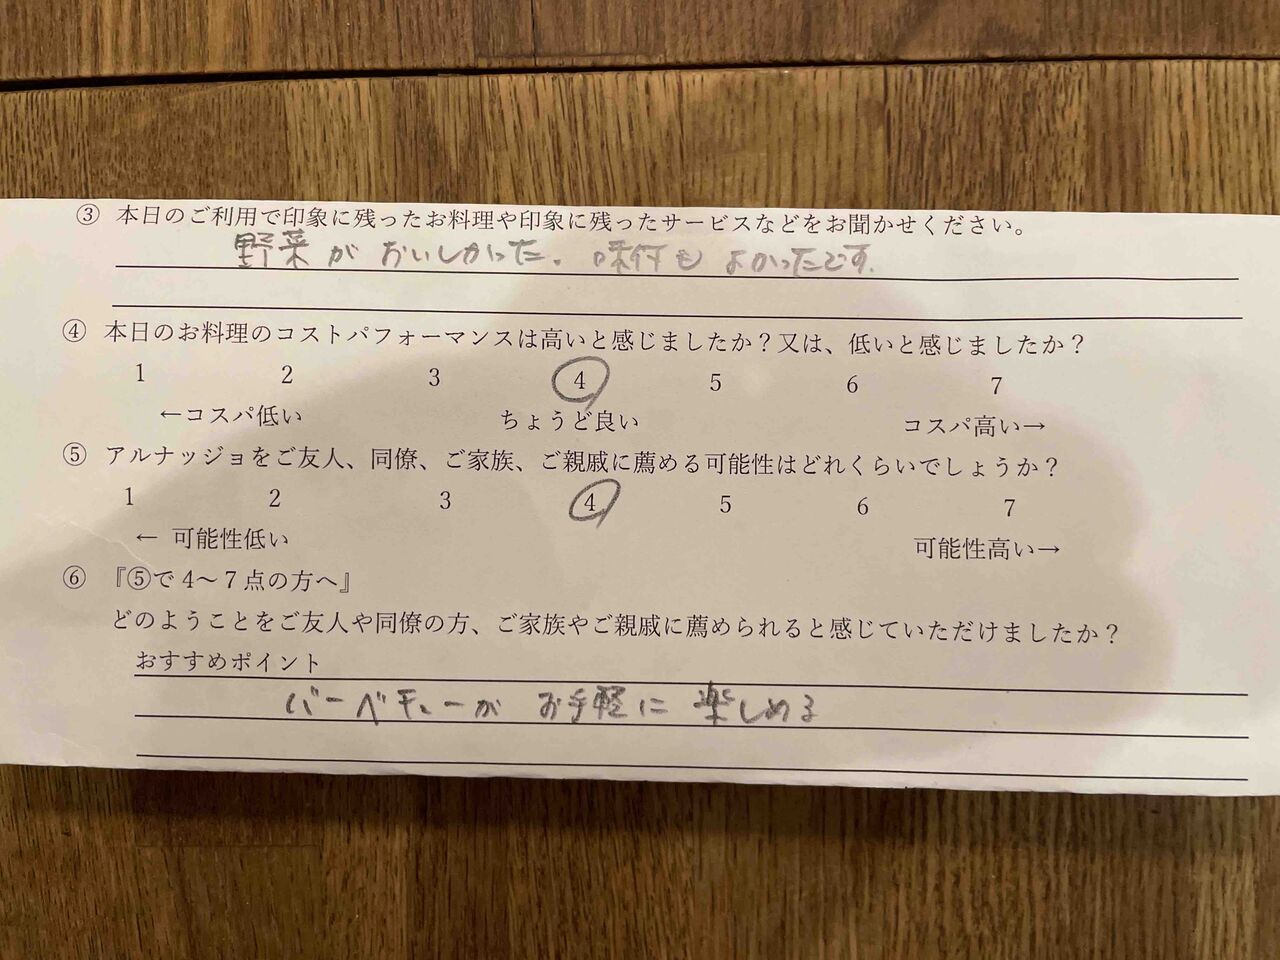 ③ 本日のご利用で印象に残ったお料理や印象に残ったサービスなどをお聞かせください。
野菜がおいしかった。味付もよかったです。
④ 本日のお料理のコストパフォーマンスは高いと感じましたか？又は、低いと感じましたか？
1 2 3 4 5 6 7
←コスパ低い ちょうど良い コスパ高い→
⑤ アルナッジョをご友人、同僚、ご家族、ご親戚に薦める可能性はどれくらいでしょうか？
1 2 3 4 5 6 7
← 可能性低い 可能性高い→
⑥ 『⑤で4～7点の方へ』
どのようことをご友人や同僚の方、ご家族やご親戚に薦められると感じていただけましたか？
おすすめポイント
バーベキューがお手軽に楽しめる